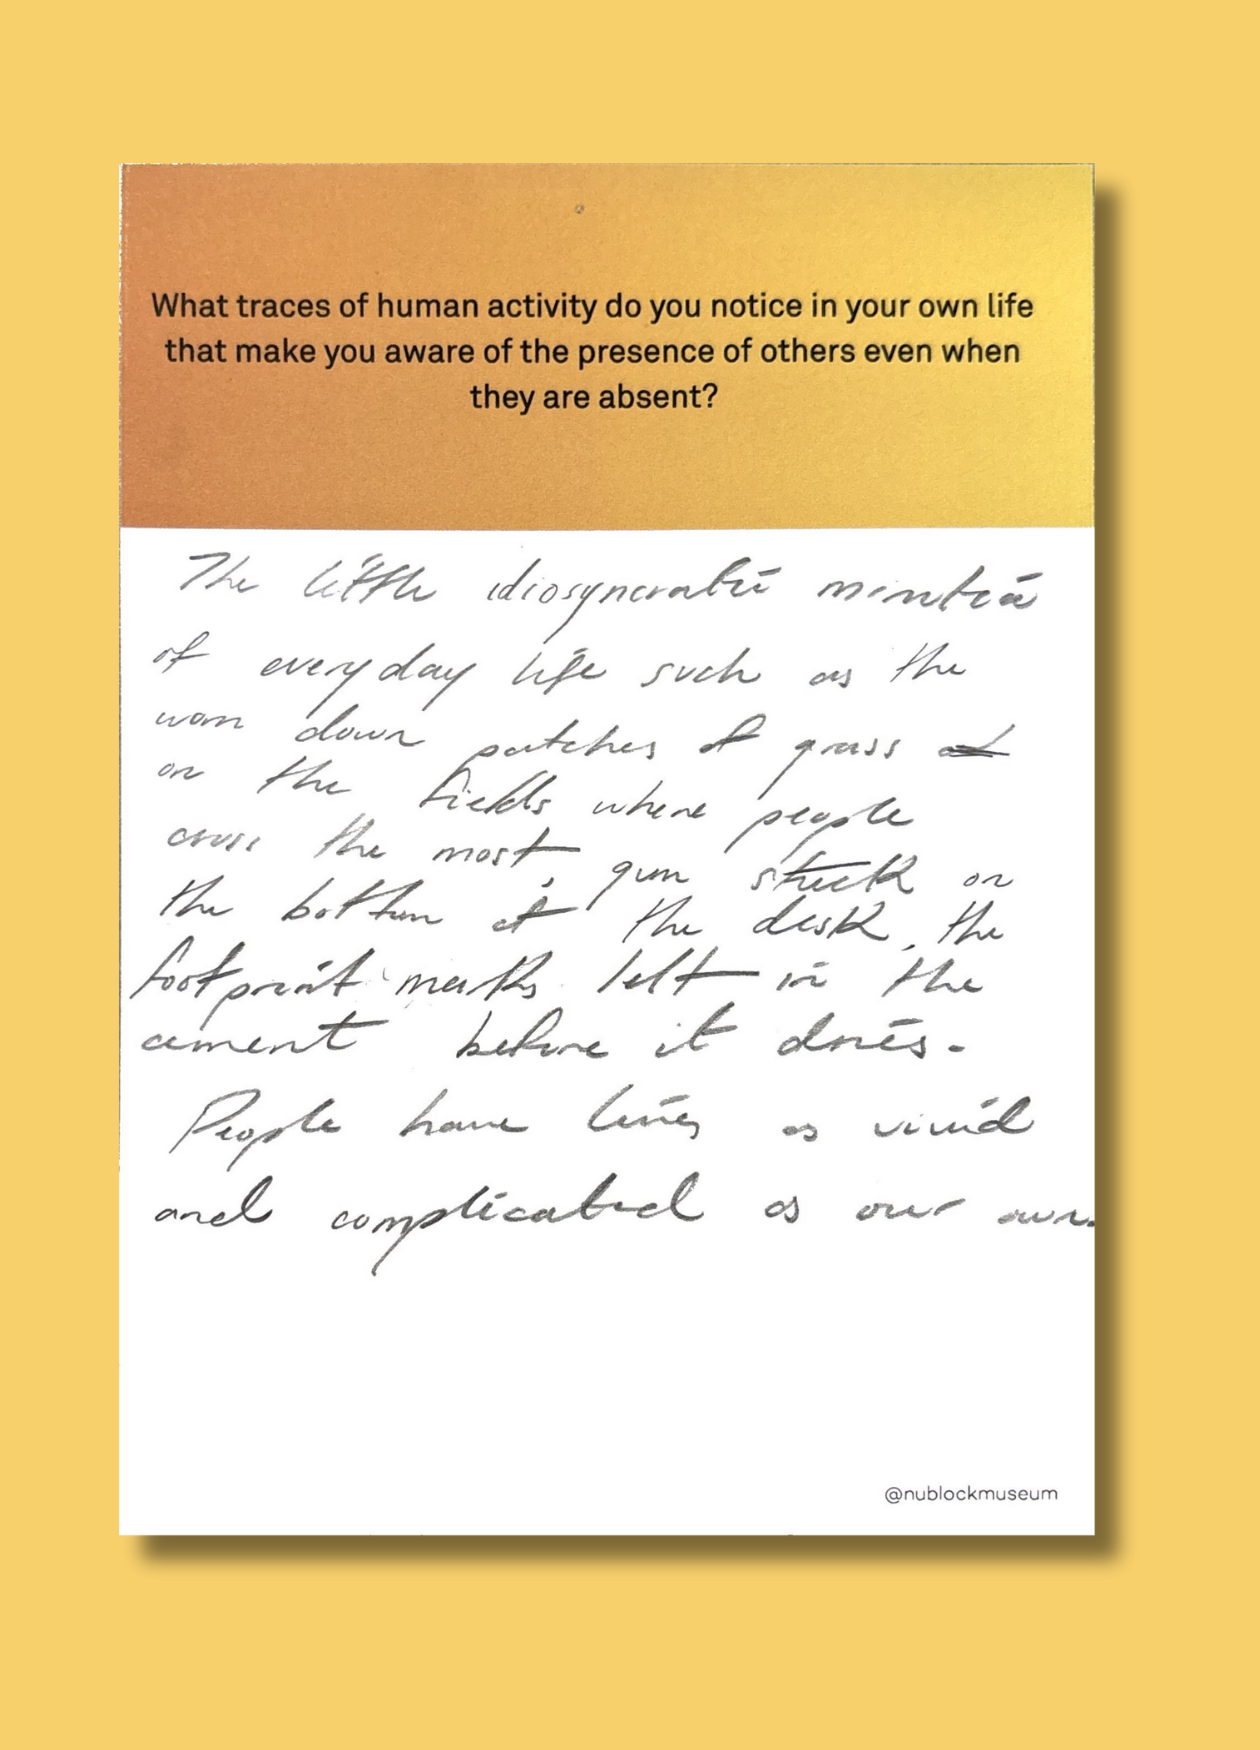 What traces of human activity do you notice in your own life
that make you aware of the presence of others even when
they are absent?
The little idiosyncratic minutia
of everyday life such as the
worn down patches of grass
on the fields where people
cross the most, gum stuck on
the bottom of the desk, the
footprint marks left in the
cement before it dries.
People have lives as vivid
and complicated as our own.
@nublockmuseum